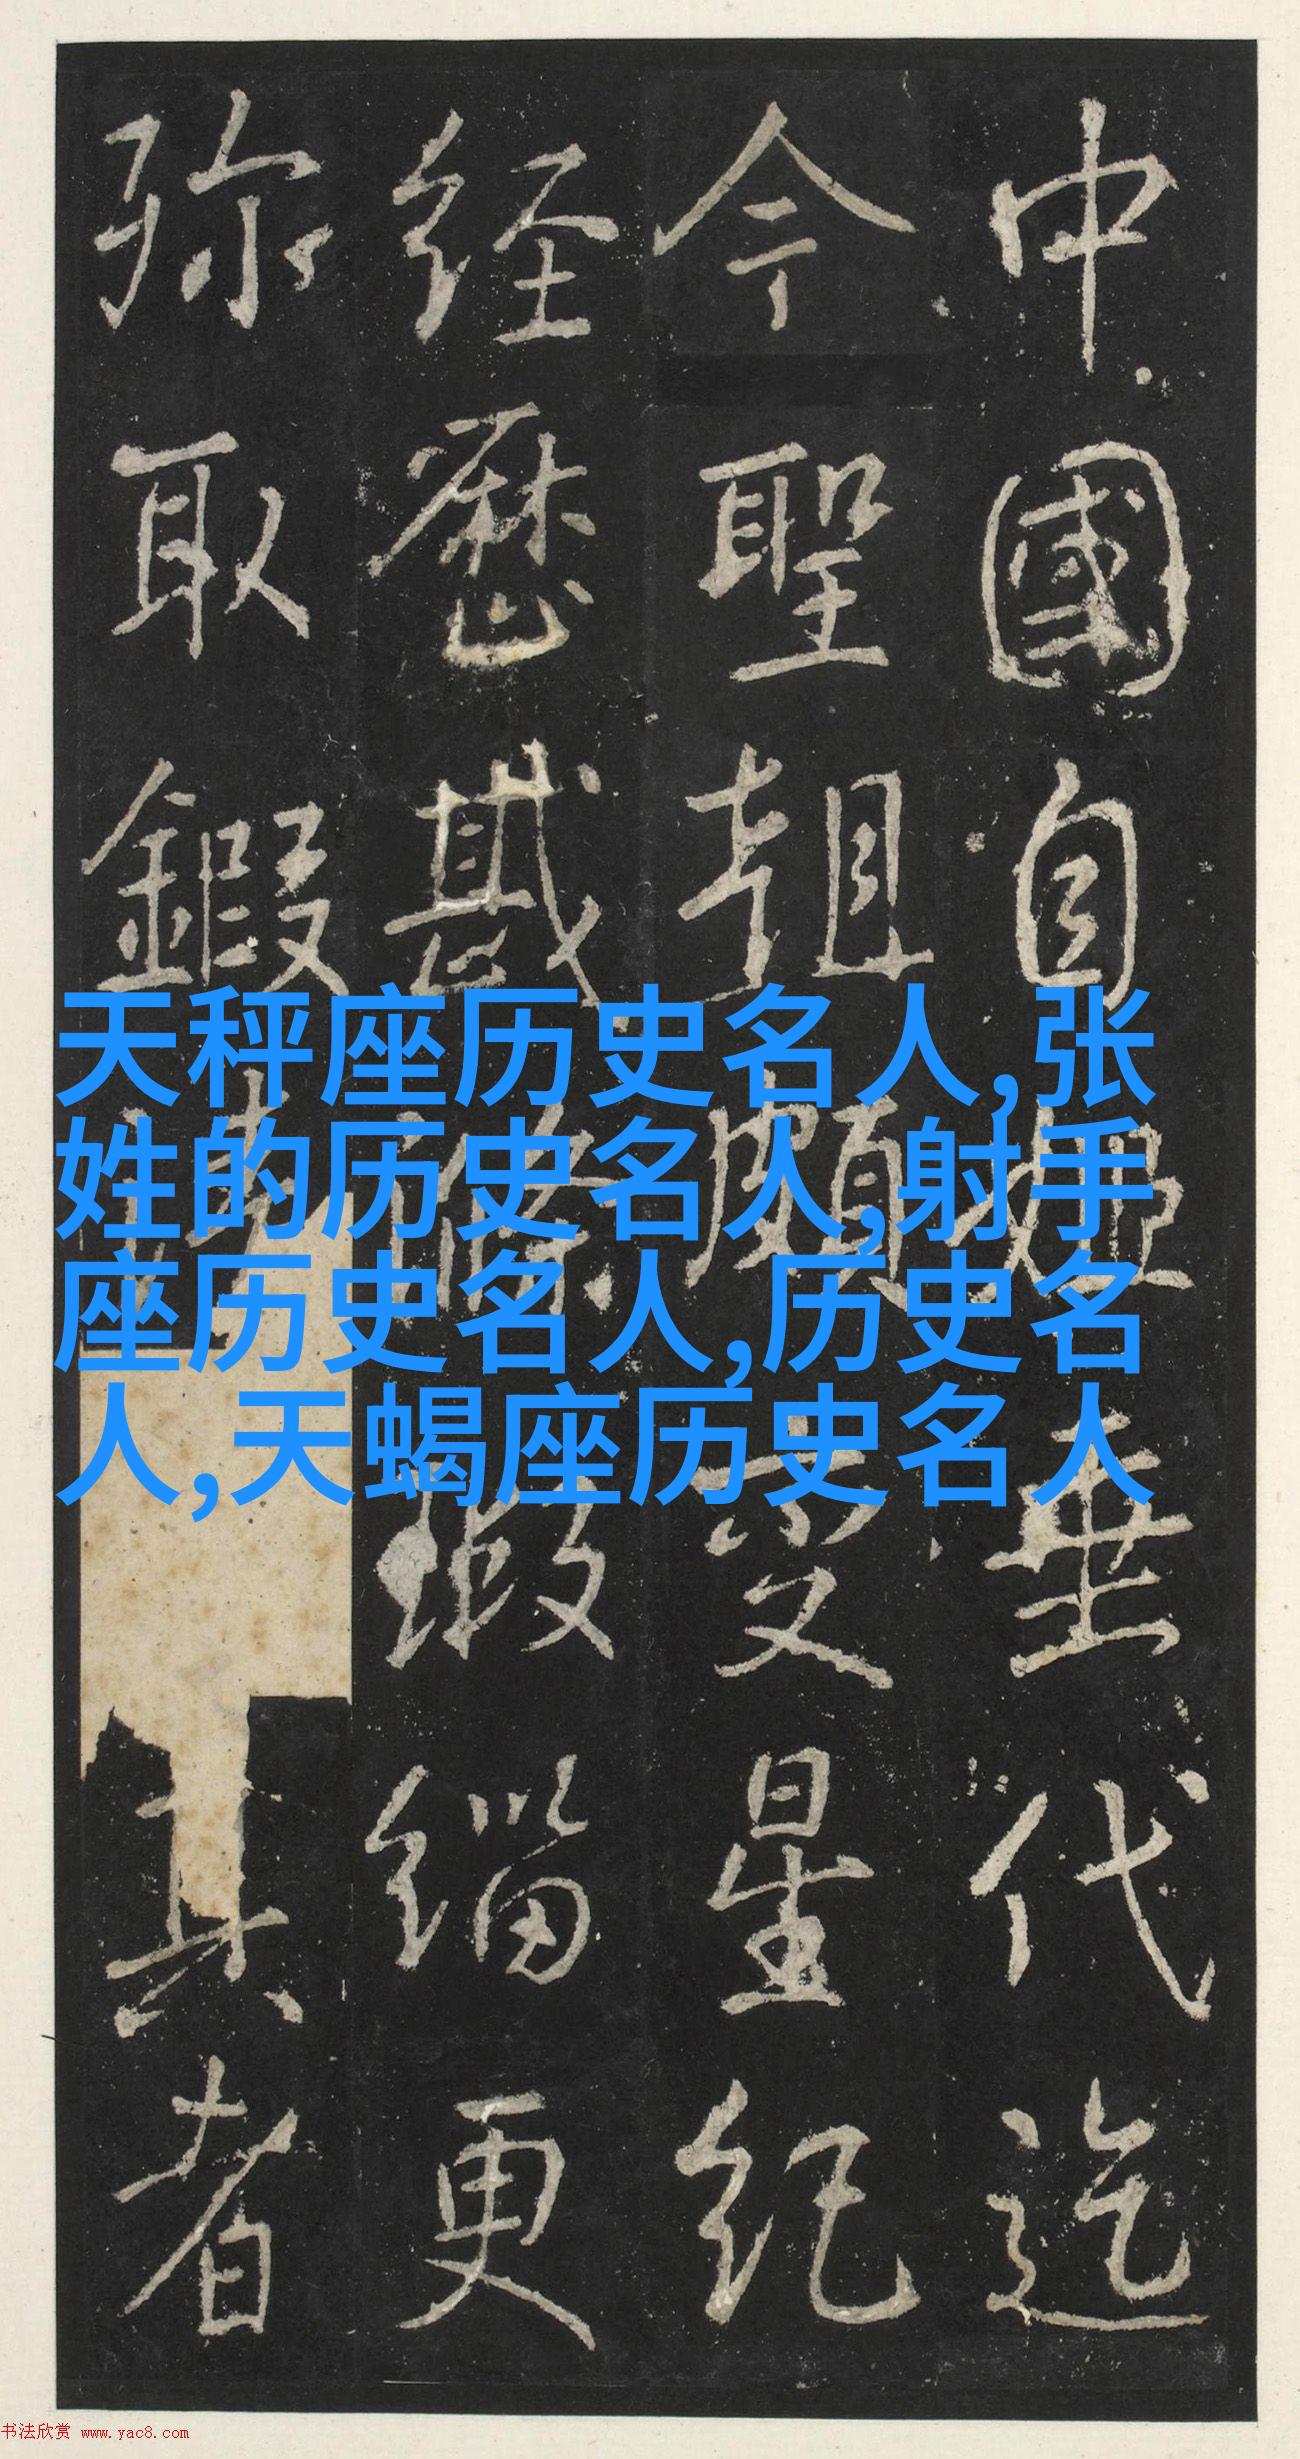 中國自垂代迄
今聖星紀
経歷緇更
弥取鍜真者
天秤座历史名人,张
姓的历史名人,射手
座历史名人,历史名
人,天蝎座历史名人
书法欣赏 www.yac8.com